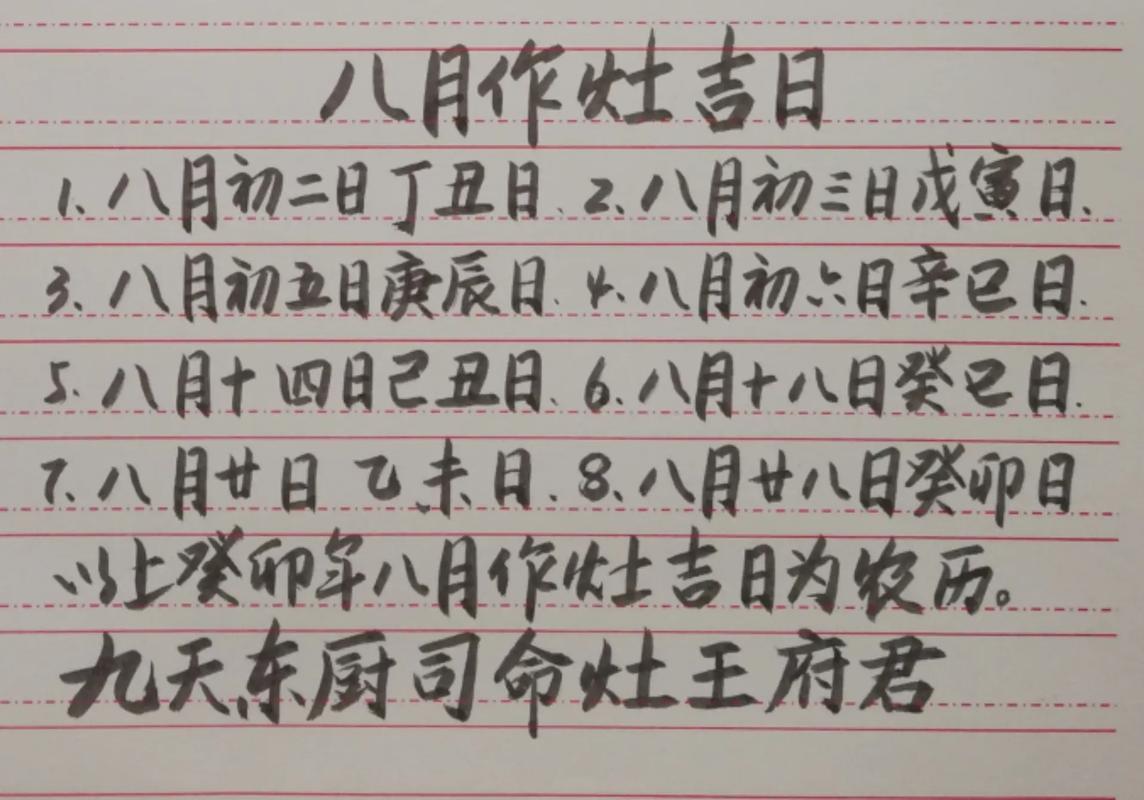 八月作灶吉日
1. 八月初二日丁丑日. 2. 八月初三日戊寅日.
3. 八月初五日庚辰日. 4. 八月初六日辛巳日.
5. 八月十四日己丑日. 6. 八月十八日癸巳日.
7. 八月廿日 乙未日. 8. 八月廿八日癸卯日
以上癸卯年八月作灶吉日为农历。
九天东厨司命灶王府君